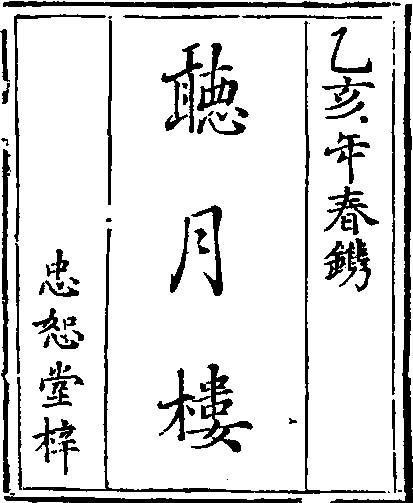 乙亥年春鐫
聽月樓
忠恕堂梓